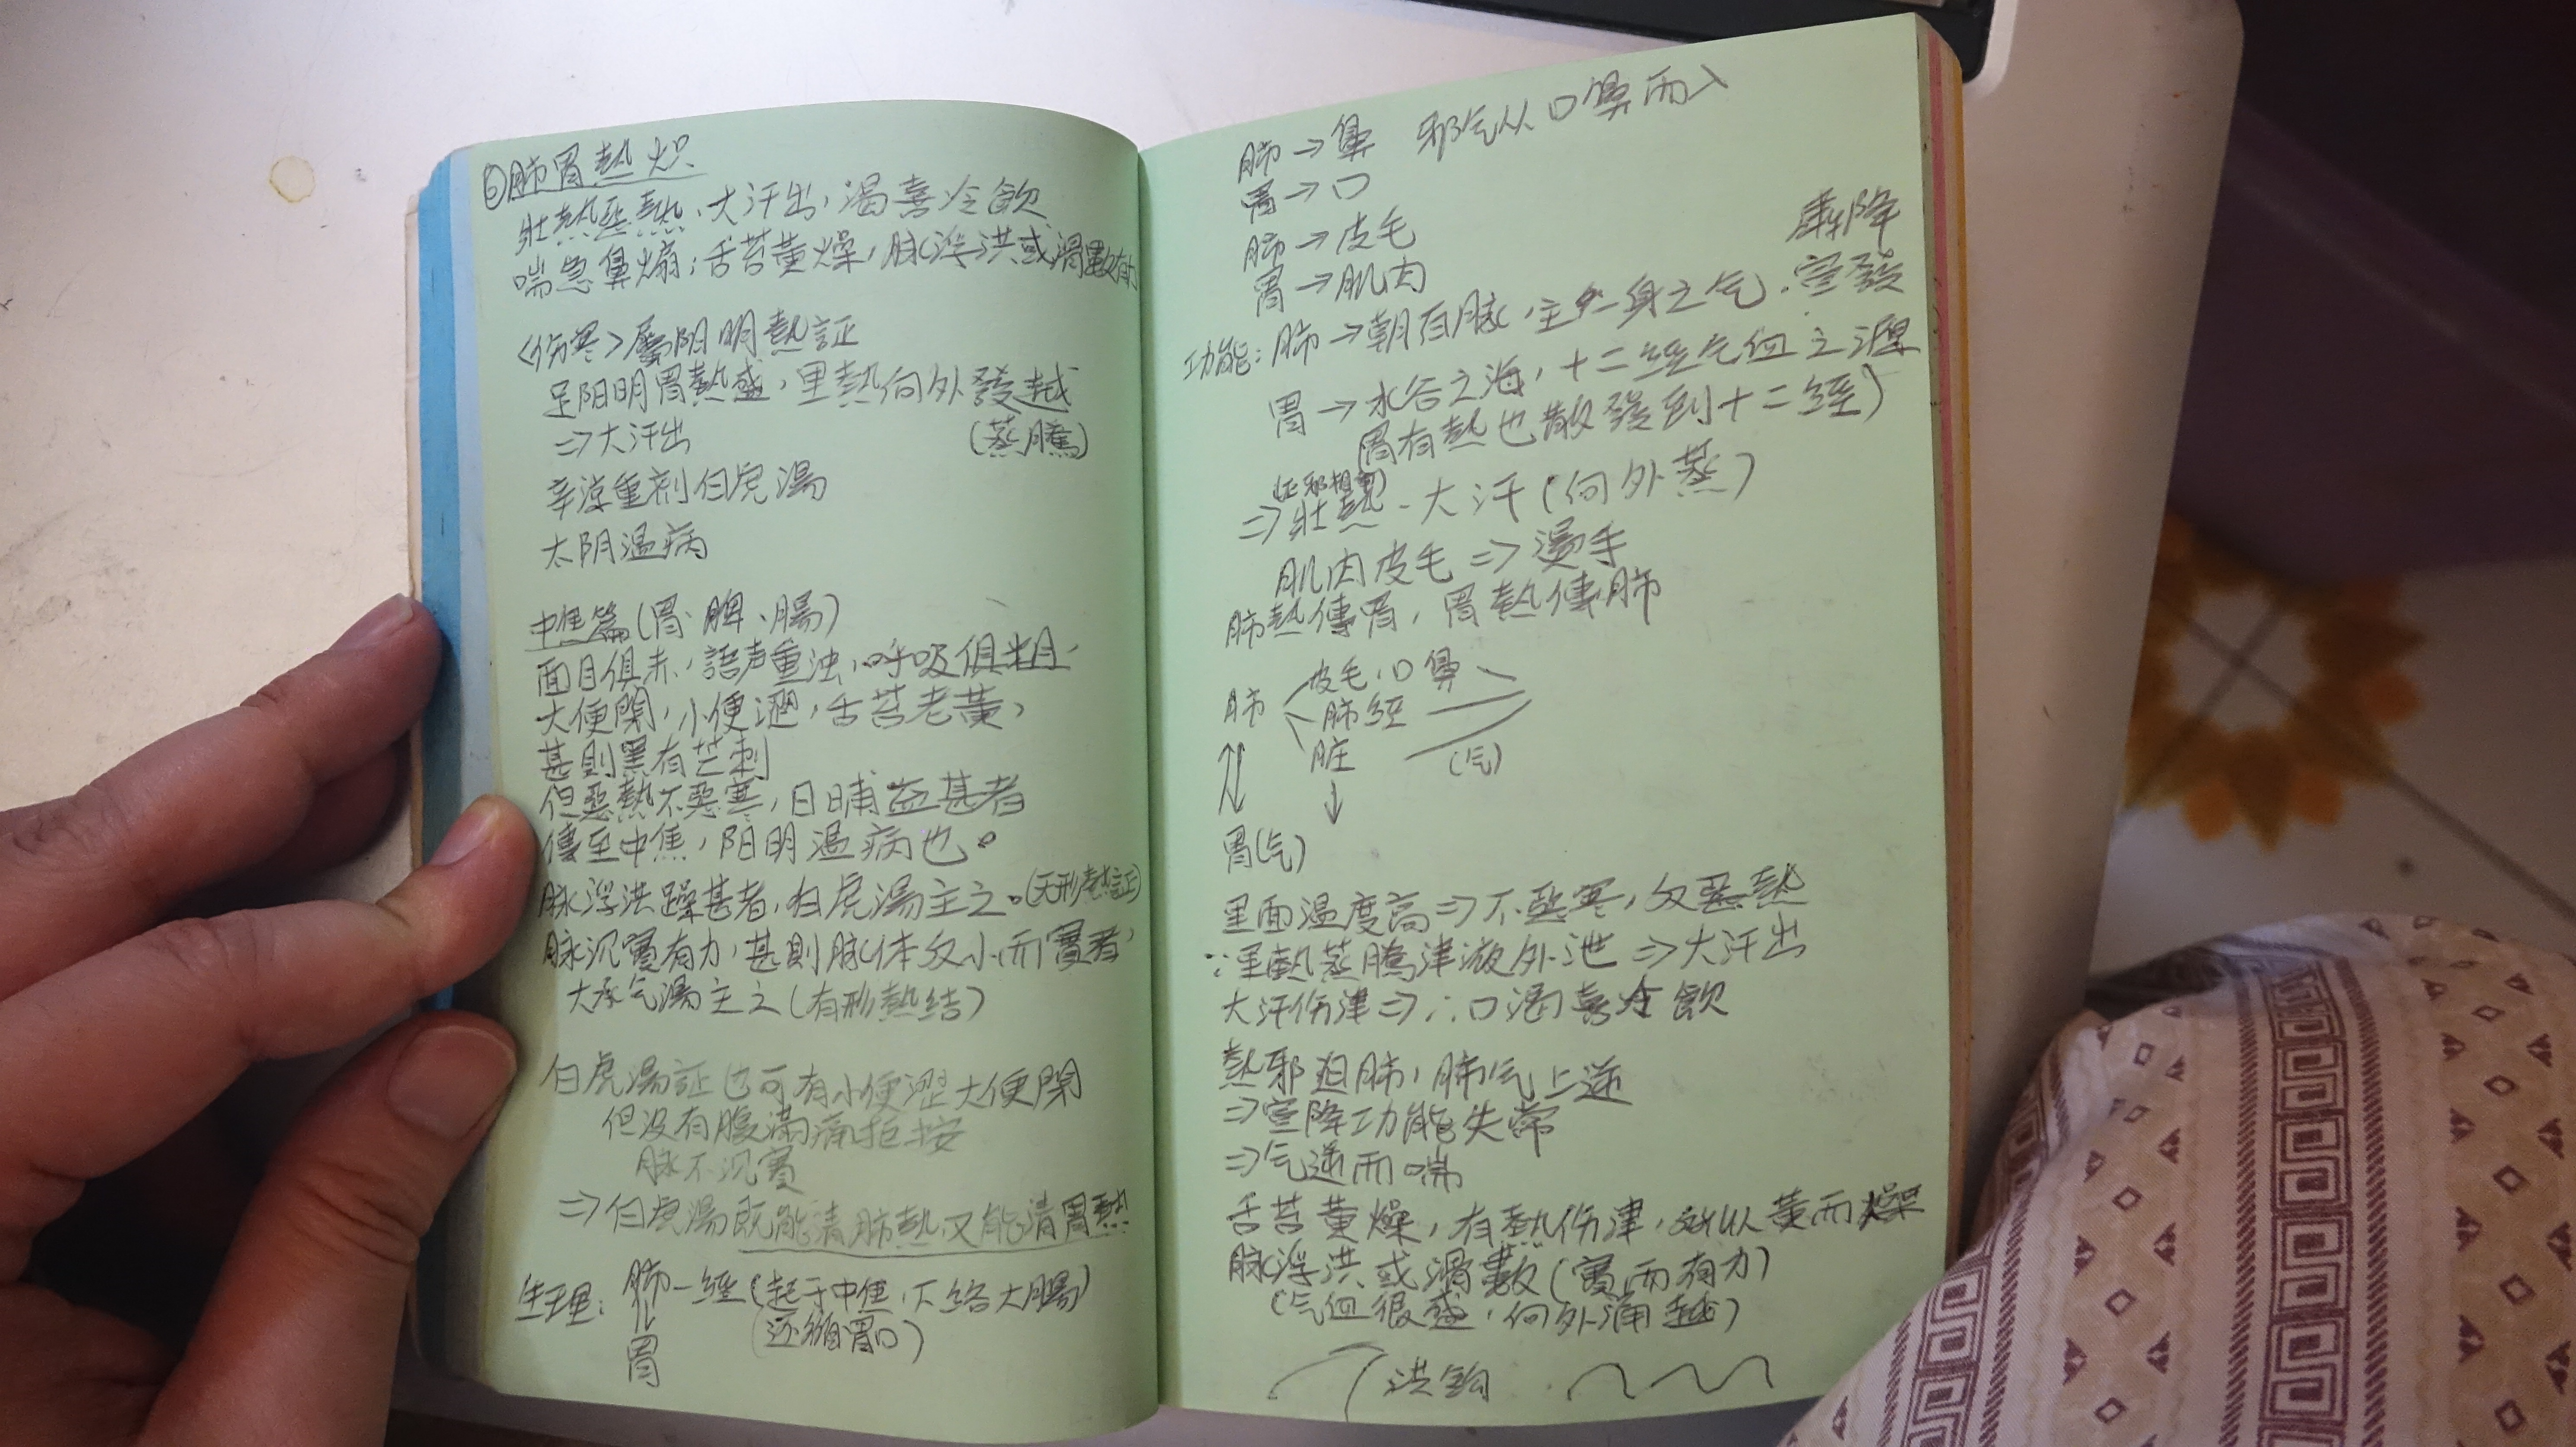 ⑥肺胃熱炽
壯熱惡熱、大汗出，渴喜冷飲
喘急鼻煽；舌苔黃燥，脉浮洪或滑數有力
<伤寒>屬阳明熱証
足阳明胃熱盛，里熱向外發越
⇒大汗出 (蒸騰)
辛凉重剂白虎湯
太阴温病
中焦篇(胃、脾、腸)
面目俱赤，語声重浊，呼吸俱粗，
大便閉，小便澀，舌苔老黃，
甚則黑有芒刺
但惡熱不惡寒，日晡益甚者
傳至中焦，阳明温病也。
脉浮洪躁甚者，白虎湯主之。(无形熱証)
脉沉實有力，甚則脉体反小而實者，
大承气湯主之(有形熱结)
白虎湯証也可有小便澀大便閉
但没有腹满痛拒按
脉不沉實
⇒白虎湯既能清肺熱又能清胃熱
生理：肺—經(起于中焦，下络大腸)
(还循胃口)
胃
肺→鼻 邪气从口鼻而入
胃→口
肺→皮毛
胃→肌肉
肅降
功能：肺→朝百脉，主一身之气．宣發
胃→水谷之海，十二經气血之源
胃有熱也散發到十二經)
(正邪相争)
⇒壯熱、大汗(向外蒸)
肌肉皮毛⇒燙手
肺熱傳胃，胃熱傳肺
皮毛，口鼻
肺 肺經
脏 (气)
↓
胃(气)
里面温度高⇒不惡寒，反惡熱
∵里熱蒸騰津液外泄⇒大汗出
大汗伤津⇒∴口渴喜冷飲
熱邪迫肺，肺气上逆
⇒宣降功能失常
⇒气逆而喘
舌苔黃燥，有熱伤津，所以黃而燥
脉浮洪或滑數(實而有力)
(气血很盛，向外涌越)
洪鈎